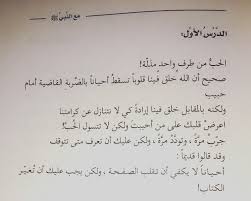 مع النبي ﷺ
الدَّرسُ الأول:
الحبُّ من طرفٍ واحدٍ مذلّة!
صحيح أن الله خلق فينا قلوباً تسقطُ أحياناً بالضربة القاضية أمام
حبيب
ولكنه بالمقابل خلق فينا إرادة كي لا نتنازل عن كرامتنا
اعرضْ قلبك على من أحببتَ ولكن لا تتسول الحُبَّ!
جرّب مرَّة، وتودَّدْ مرَّة، ولكن يجب عليك أن تعرف متى تتوقف
وقد قالوا قديماً:
أحياناً لا يكفي أن تقلب الصفحة، ولكن يجب عليك أن تُغيّر
الكتاب!